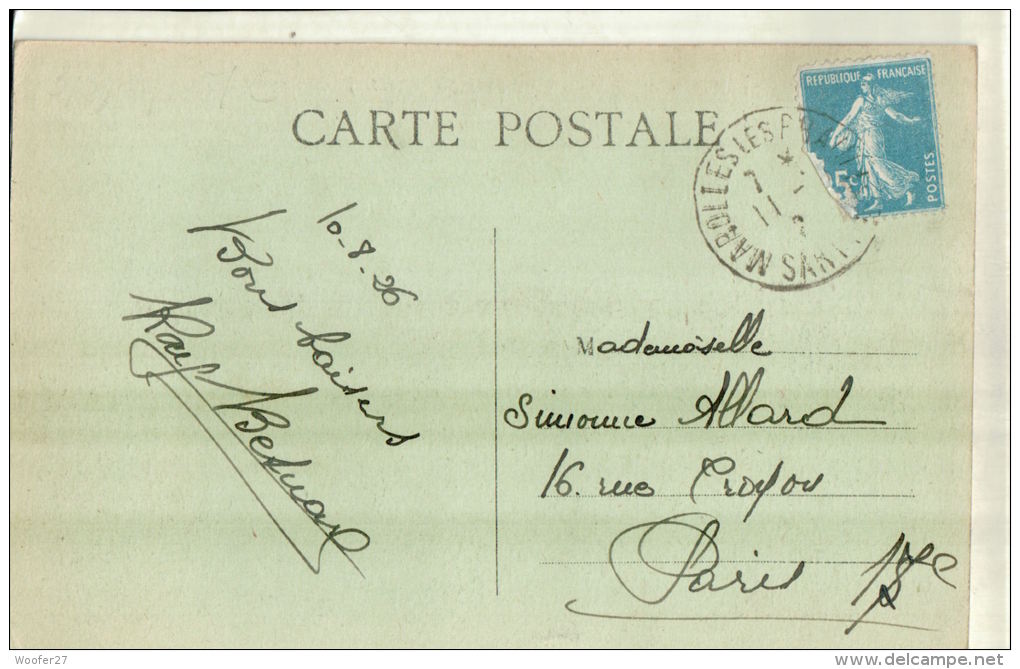 CARTE POSTALE
REPUBLIQUE FRANÇAISE
5c
POSTES
MAROLLES LES
SART
10-8-26
Bons baisers
Ray
Mademoiselle
Simonne Allard
16. rue
Paris 18e
Woofer27
www.delcampe.net